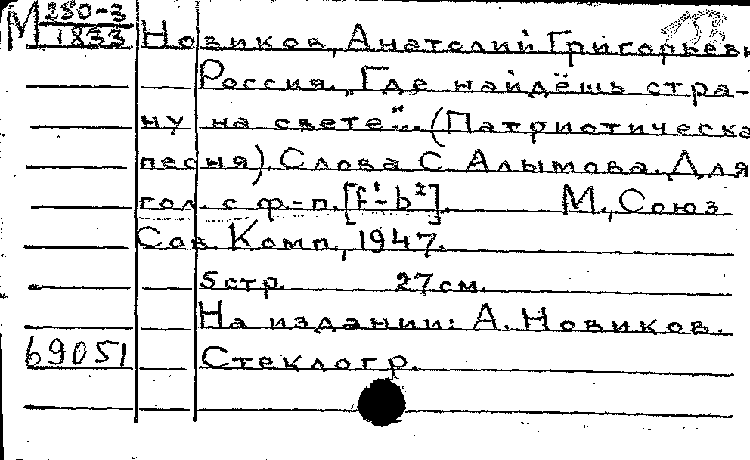 М 280-3
1833
Новиков, Анатолий Григорьеви
Россия. „Где найдёшь стра-
ну на свете"... (Патриотическа
песня). Слова С. Алымова. Для
гол. с ф.-п. [f¹-b²]. М., Союз
Сов. Комп., 1947.
5 стр. 27 см.
На издании: А. Новиков.
69051 Стеклогр.